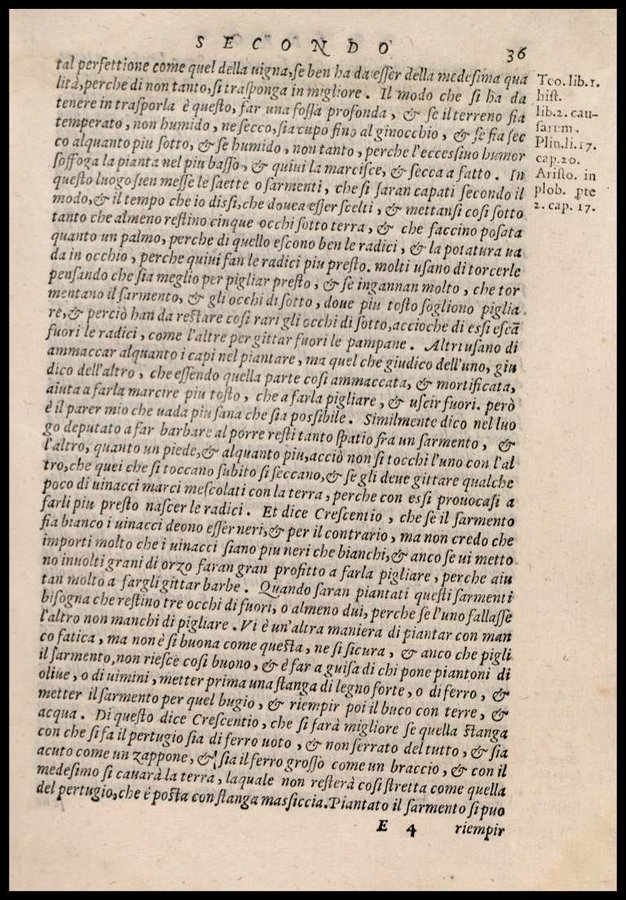 SECONDO 36
tal perfettione come quel della uigna, se ben ha da eſſer della medeſima qua
lità, perche di non tanto, ſi traſponga in migliore. Il modo che ſi ha da
tenere in traſporla è queſto, far una foſſa profonda, & ſe il terreno ſia
temperato, non humido, ne ſecco, ſia cupo fino al ginocchio, & ſe ſia ſec
co alquanto piu ſotto, & ſe humido, non tanto, perche l'ecceſſiuo humor
ſoffoga la pianta nel piu baſſo, & quiui la marciſce, & ſecca a fatto. In
queſto luogo ſien meſſe le ſaette o ſarmenti, che ſi ſaran capati ſecondo il
modo, & il tempo che io diſſi, che douea eſſer ſcelti, & mettanſi coſi ſotto
tanto che almeno reſtino cinque occhi ſotto terra, & che faccino poſata
quanto un palmo, perche di quello eſcono ben le radici, & la potatura ua
da in occhio, perche quiui fan le radici piu preſto. molti uſano di torcerle
penſando che ſia meglio per pigliar preſto, & ſe ingannan molto, che tor
mentano il ſarmento, & gli occhi di ſotto, doue piu toſto ſogliono piglia
re, & perciò han da reſtare coſi rari gli occhi di ſotto, accioche di eſſi eſcā
fuori le radici, come l'altre per gittar fuori le pampane. Altri uſano di
ammaccar alquanto i capi nel piantare, ma quel che giudico dell'uno, giu
dico dell'altro, che eſſendo quella parte coſi ammaccata, & mortificata,
aiuta a farla marcire piu toſto, che a farla pigliare, & uſcir fuori. però
è il parer mio che uada piu ſana che ſia poſſibile. Similmente dico nel luo
go deputato a far barbare al porre reſti tanto ſpatio fra un ſarmento, &
l'altro, quanto un piede, & alquanto piu, acciò non ſi tocchi l'uno con l'al
tro, che quei che ſi toccano ſubito ſi ſeccano, & ſe gli deue gittare qualche
poco di uinacci marci meſcolati con la terra, perche con eſſi prouocaſi a
farli piu preſto naſcer le radici. Et dice Creſcentio, che ſe il ſarmento
ſia bianco i uinacci deono eſſer neri, & per il contrario, ma non credo che
importi molto che i uinacci ſiano piu neri che bianchi, & anco ſe ui metto
no inuolti grani di orzo faran gran profitto a farla pigliare, perche aiu
tan molto a fargli gittar barbe. Quando ſaran piantati queſti ſarmenti
biſogna che reſtino tre occhi di fuori, o almeno dui, perche ſe l'uno fallaſſe
l'altro non manchi di pigliare. Vi è un'altra maniera di piantar con man
co fatica, ma non è ſi buona come queſta, ne ſi ſicura, & anco che pigli
il ſarmento, non rieſce coſi buono, & è far a guiſa di chi pone piantoni di
oliue, o di uimini, metter prima una ſtanga di legno forte, o di ferro, &
metter il ſarmento per quel bugio, & riempir poi il buco con terre, &
acqua. Di queſto dice Creſcentio, che ſi farà migliore ſe quella ſtanga
con che ſi fa il pertugio ſia di ferro uoto, & non ſerrato del tutto, & ſia
acuto come un zappone, & ſia il ferro groſſo come un braccio, & con il
medeſimo ſi cauarà la terra, laquale non reſterà coſi ſtretta come quella
del pertugio, che è poſta con ſtanga maſſiccia. Piantato il ſarmento ſi puo
E 4 riempir
Teo. lib. 1.
hiſt.
lib. 2. cau-
ſarum.
Plin. li. 17.
cap. 20.
Ariſto. in
plob. pte
2. cap. 17.